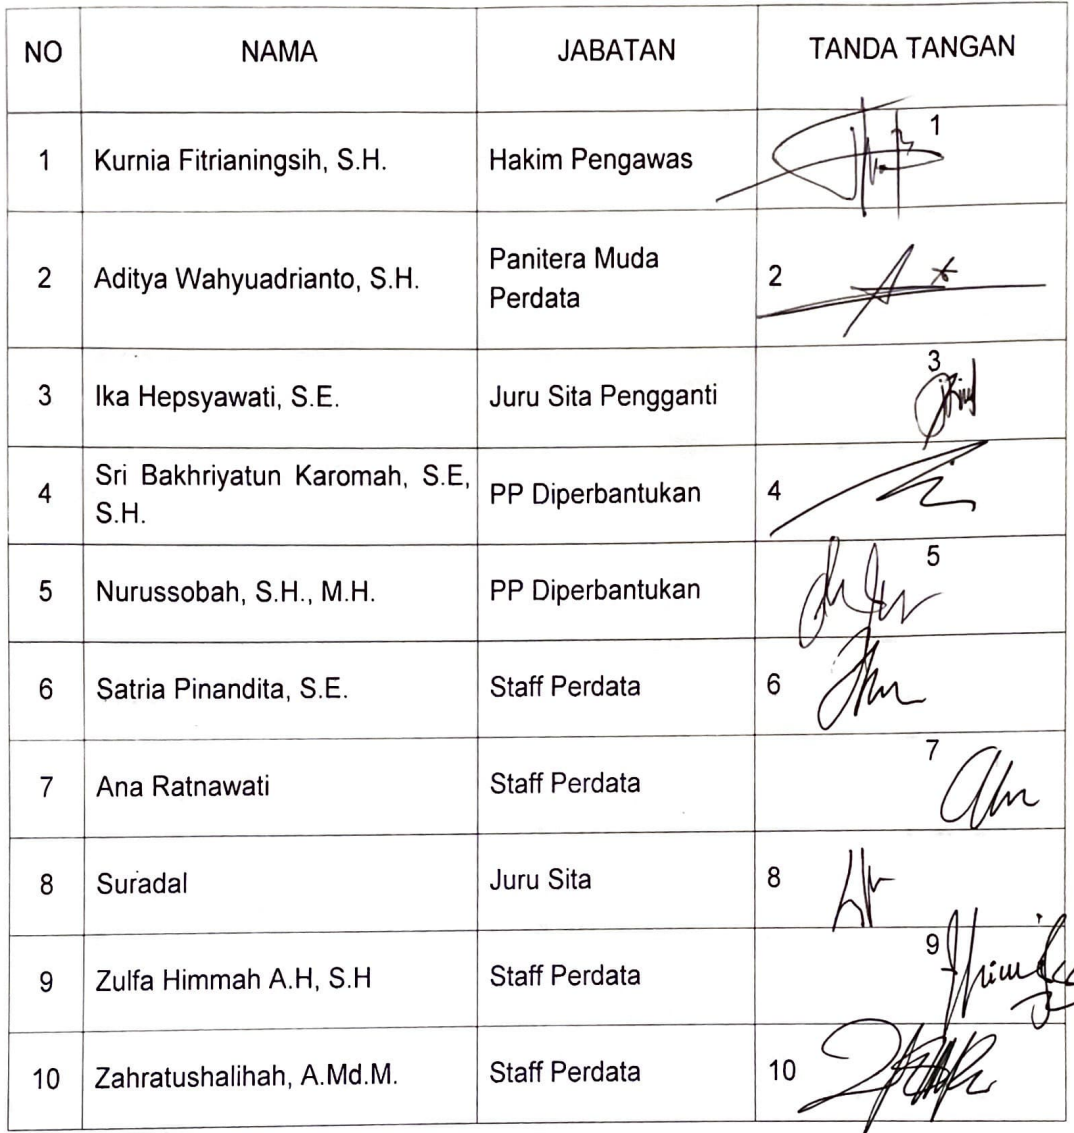 NO NAMA JABATAN TANDA TANGAN
1 Kurnia Fitrianingsih, S.H. Hakim Pengawas 1
2 Aditya Wahyuadrianto, S.H. Panitera Muda Perdata 2
3 Ika Hepsyawati, S.E. Juru Sita Pengganti 3
4 Sri Bakhriyatun Karomah, S.E, S.H. PP Diperbantukan 4
5 Nurussobah, S.H., M.H. PP Diperbantukan 5
6 Satria Pinandita, S.E. Staff Perdata 6
7 Ana Ratnawati Staff Perdata 7
8 Suradal Juru Sita 8
9 Zulfa Himmah A.H, S.H Staff Perdata 9
10 Zahratushalihah, A.Md.M. Staff Perdata 10